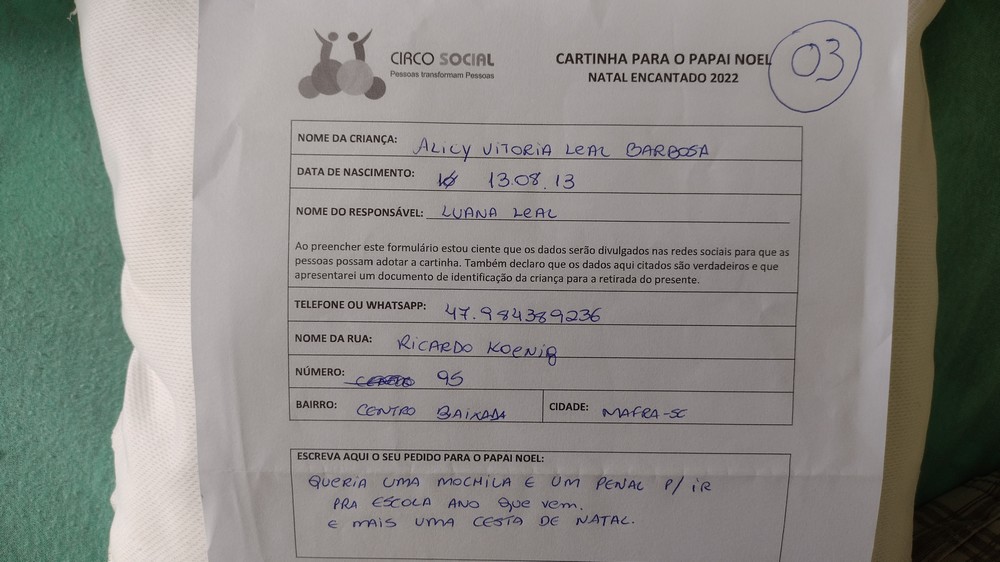 CIRCO SOCIAL
Pessoas transformam Pessoas
CARTINHA PARA O PAPAI NOEL
NATAL ENCANTADO 2022
03
NOME DA CRIANÇA: ALICY VITORIA LEAL BARBOSA
DATA DE NASCIMENTO: 13.08.13
NOME DO RESPONSÁVEL: LUANA LEAL
Ao preencher este formulário estou ciente que os dados serão divulgados nas redes sociais para que as
pessoas possam adotar a cartinha. Também declaro que os dados aqui citados são verdadeiros e que
apresentarei um documento de identificação da criança para a retirada do presente.
TELEFONE OU WHATSAPP: 47.984389236
NOME DA RUA: RICARDO KOENIG
NÚMERO: 95
BAIRRO: CENTRO BAIXADA CIDADE: MAFRA-SC
ESCREVA AQUI O SEU PEDIDO PARA O PAPAI NOEL:
QUERIA UMA MOCHILA E UM PENAL P/ IR
PRA ESCOLA ANO QUE VEM.
E MAIS UMA CESTA DE NATAL.